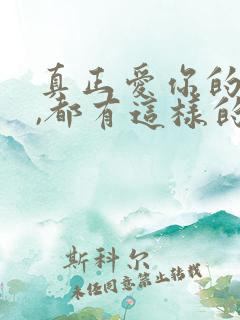 真正爱你的
,都有這樣的
斯科尔
未经同意禁止转载